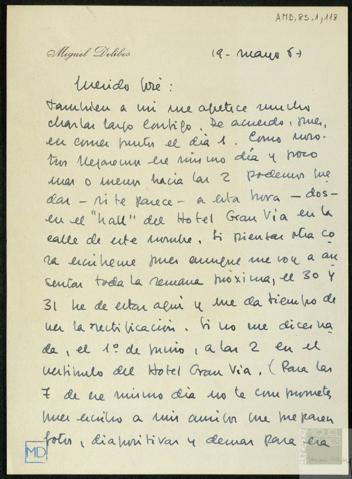 AMD, 85, 1, 118
Miguel Delibes
19 - mayo 67
Querido José:
También a mi me apetece mucho
charlar largo contigo. De acuerdo, pues,
en comer juntos el día 1. Como noso-
tros llegaremos ese mismo día y poco
mas o menos hacia las 2 podemos que
dar - si te parece - a esta hora - dos -
en el "hall" del Hotel Gran Vía en la
calle de este nombre. Si piensas otra co
sa escríbeme pues aunque me voy a au
sentar toda la semana próxima, el 30 y
31 he de estar aquí y me da tiempo de
ver la rectificación. Si no me dices na
da, el 1º de junio, a las 2 en el
vestíbulo del Hotel Gran Via. (Para las
7 de ese mismo día no te comprometas
pues escribo a mis amigos que preparen
fotos, diapositivas y demas para esa
MD